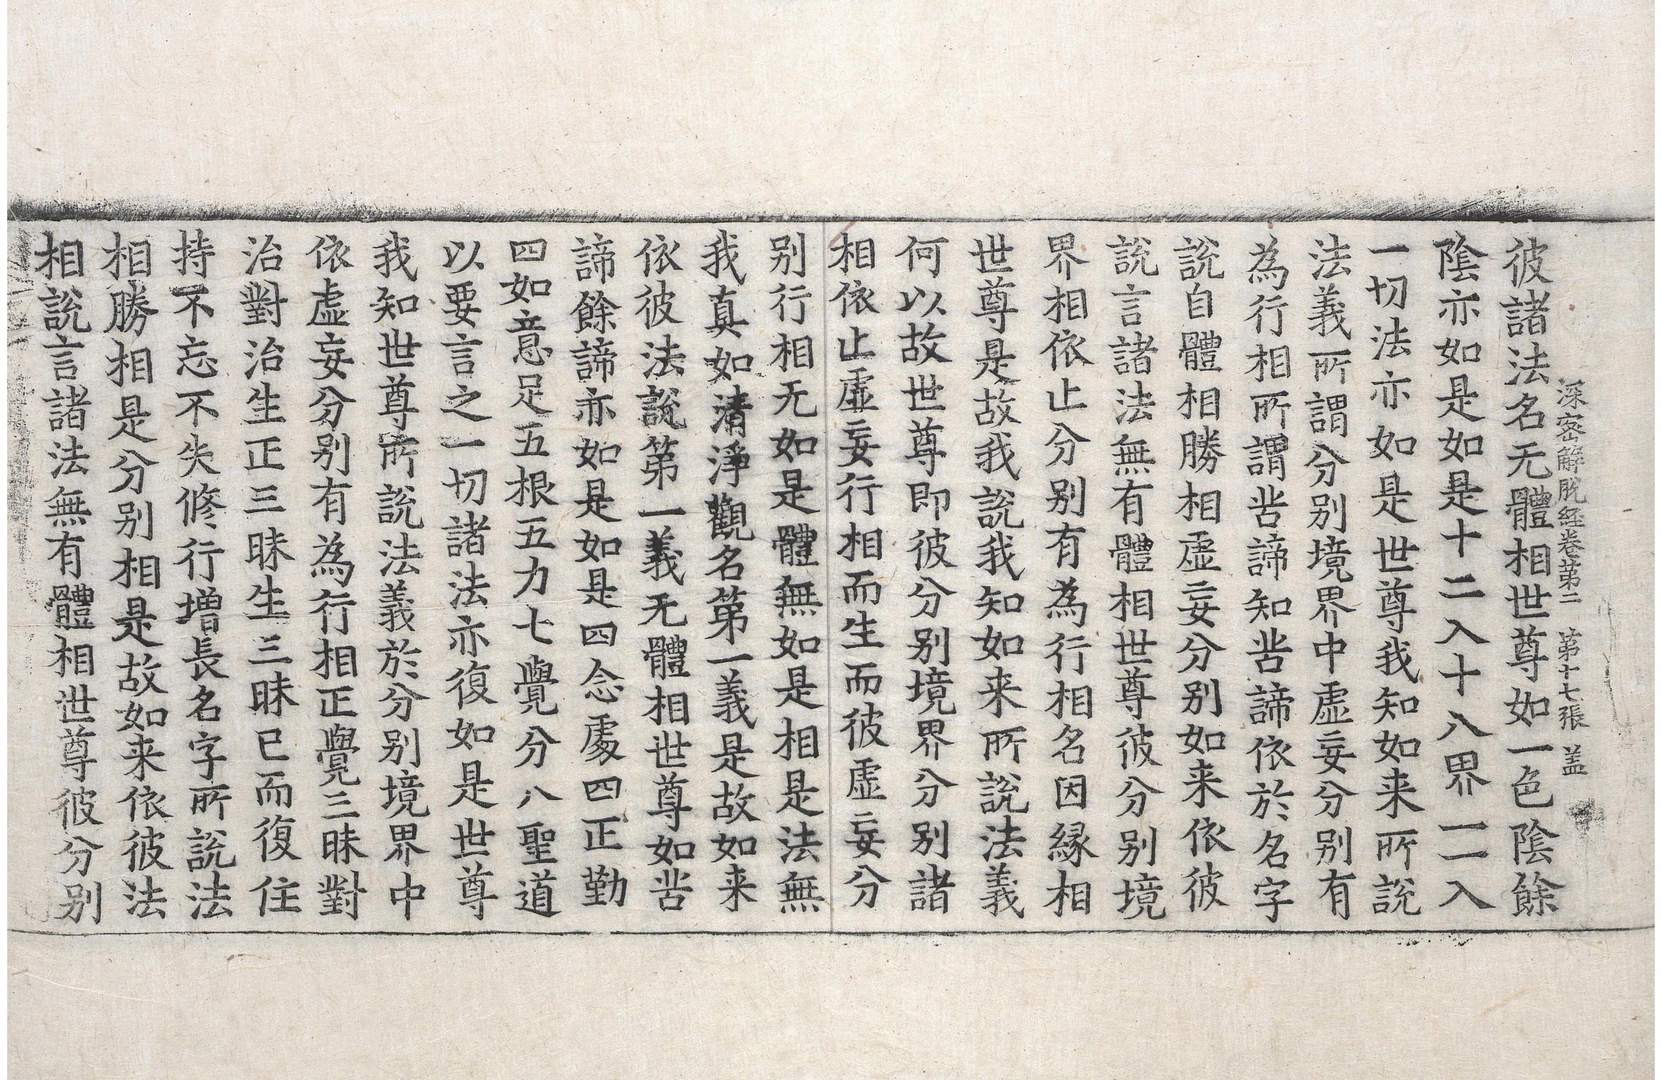 深密解脫經卷第二 第十七張 盖
彼諸法名无體相世尊如一色陰餘
陰亦如是如是十二入十八界一一入
一切法亦如是世尊我知如来所說
法義所謂分別境界中虛妄分別有
為行相所謂苦諦知苦諦依於名字
說自體相勝相虛妄分別如来依彼
說言諸法無有體相世尊彼分別境
界相依止分別有為行相名因緣相
世尊是故我說我知如来所說法義
何以故世尊即彼分別境界分別諸
相依止虛妄行相而生而彼虛妄分
別行相无如是體無如是相是法無
我真如清淨觀名第一義是故如来
依彼法說第一義无體相世尊如苦
諦餘諦亦如是如是四念處四正勤
四如意足五根五力七覺分八聖道
以要言之一切諸法亦復如是世尊
我知世尊所說法義於分別境界中
依虛妄分別有為行相正覺三昧對
治對治生正三昧生三昧已而復住
持不忘不失修行增長名字所說法
相勝相是分別相是故如来依彼法
相說言諸法無有體相世尊彼分別